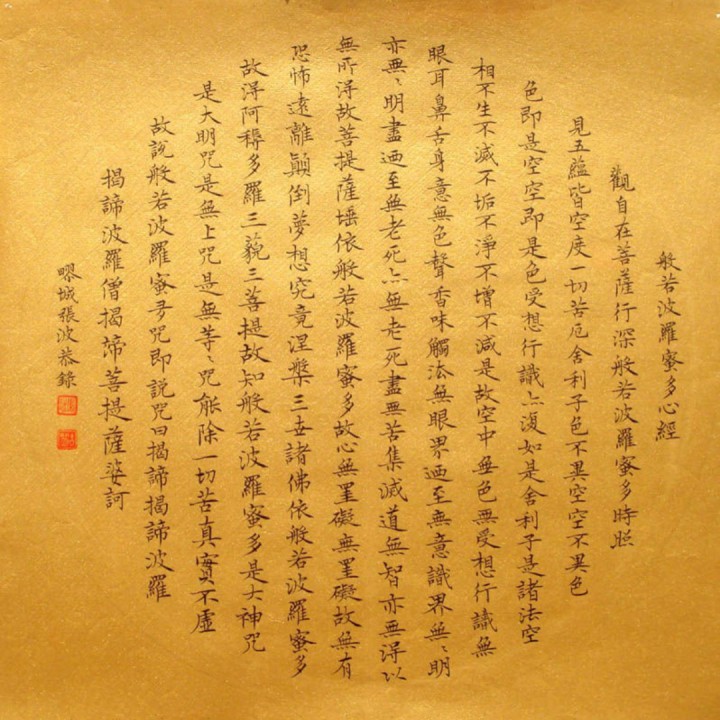 般若波羅蜜多心經
觀自在菩薩行深般若波羅蜜多時照
見五蘊皆空度一切苦厄舍利子色不異空空不異色
色即是空空即是色受想行識亦復如是舍利子是諸法空
相不生不滅不垢不淨不增不減是故空中無色無受想行識無
眼耳鼻舌身意無色聲香味觸法無眼界廼至無意識界無、明
亦無、明盡廼至無老死亦無老死盡無苦集滅道無智亦無得以
無所得故菩提薩埵依般若波羅蜜多故心無罣礙無罣礙故無有
恐怖遠離顛倒夢想究竟涅槃三世諸佛依般若波羅蜜多
故得阿耨多羅三藐三菩提故知般若波羅蜜多是大神咒
是大明咒是無上咒是無等、咒能除一切苦真實不虛
故說般若波羅蜜多咒即說咒曰揭諦揭諦波羅
揭諦波羅僧揭諦菩提薩婆訶
城張波恭錄